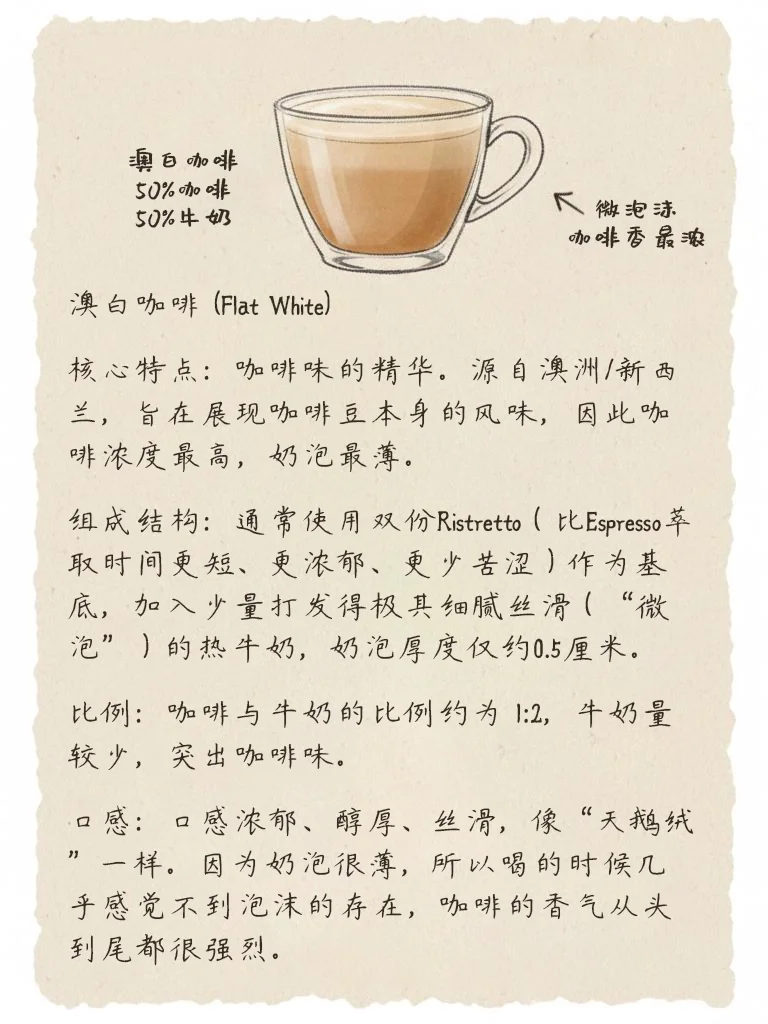 澳白咖啡
50%咖啡
50%牛奶
微泡沫
咖啡香最浓
澳白咖啡 (Flat White)
核心特点：咖啡味的精华。源自澳洲/新西
兰，旨在展现咖啡豆本身的风味，因此咖
啡浓度最高，奶泡最薄。
组成结构：通常使用双份Ristretto（比Espresso萃
取时间更短、更浓郁、更少苦涩）作为基
底，加入少量打发得极其细腻丝滑（“微
泡”）的热牛奶，奶泡厚度仅约0.5厘米。
比例：咖啡与牛奶的比例约为 1:2，牛奶量
较少，突出咖啡味。
口感：口感浓郁、醇厚、丝滑，像“天鹅绒
”一样。因为奶泡很薄，所以喝的时候几
乎感觉不到泡沫的存在，咖啡的香气从头
到尾都很强烈。